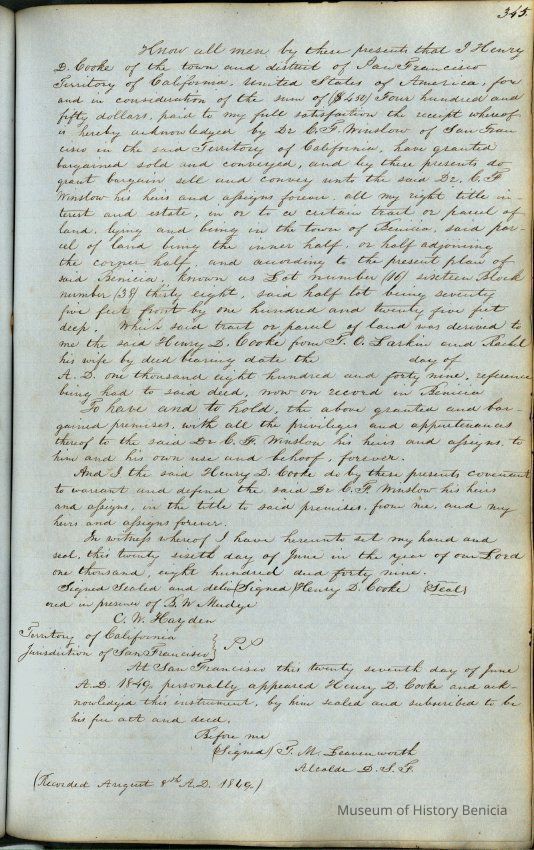 345.
Know all men by these presents that I Henry
D. Cooke of the town and district of San Francisco
Territory of California, United States of America, for
and in consideration of the sum of ($450) Four hundred and
fifty dollars, paid to my full satisfaction the receipt whereof
is hereby acknowledged by Dr C. F. Winslow of San Fran
cisco in the said Territory of California, have granted
bargained sold and conveyed, and by these presents do
grant bargain sell and convey unto the said Dr. C. F
Winslow his heirs and assigns forever, all my right title in-
terest and estate, in or to a certain tract or parcel of
land, lying and being in the town of Benicia, said par-
cel of land being the inner half, or half adjoining
the corner half, and according to the present plan of
said Benicia, known as Lot number (16) sixteen Block
number (38) thirty eight, said half lot being seventy
five feet front by one hundred and twenty five feet
deep. Which said tract or parcel of land was derived to
me the said Henry D. Cooke from T. O. Larkin and Rachel
his wife by deed bearing date the day of
A. D. one thousand eight hundred and forty nine, reference
being had to said deed, now on record in Benicia
To have and to hold, the above granted and bar-
gained premises, with all the privileges and appurtenances
thereof to the said Dr C. F. Winslow his heirs and assigns, to
him and his own use and behoof, forever.
And I the said Henry D. Cooke do by these presents covenant
to warrant and defend the said Dr C. F. Winslow his heirs
and assigns, in the title to said premises, from me, and my
heirs and assigns forever.
In witness whereof I have hereunto set my hand and
seal, this twenty sixth day of June in the year of our Lord
one thousand, eight hundred and forty nine.
Signed Sealed and deliv (Signed) Henry D. Cooke Seal
ered in presence of B. W. Mudge
C. W. Hayden
Territory of California
Jurisdiction of San Francisco } SS
At San Francisco this twenty seventh day of June
A.D. 1849, personally appeared Henry D. Cooke and ack-
nowledged this instrument, by him sealed and subscribed to be
his free act and deed.
Before me
(Signed) T. M. Leavenworth
Alcalde D. S. F.
(Recorded August 8th A.D. 1849.)
Museum of History Benicia